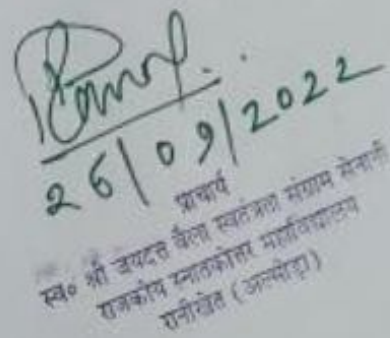 26/09/2022
प्राचार्य
स्व० श्री जयदत्त वैला स्वतंत्रता संग्राम सेनानी
राजकीय स्नातकोत्तर महाविद्यालय
रानीखेत (अल्मोड़ा)